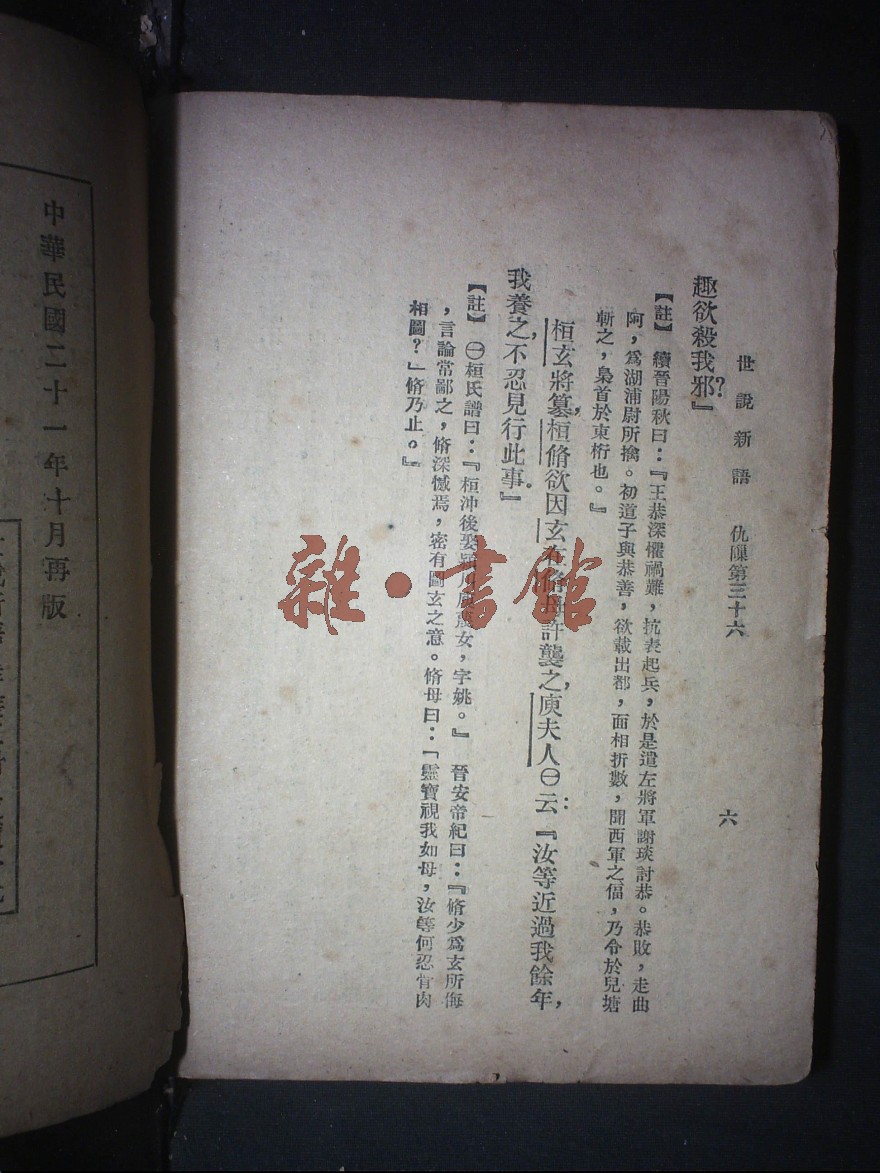 世說新語　仇隟第三十六
六
趣欲殺我邪？』
【註】　續晉陽秋曰：『王恭深懼禍難，抗表起兵，於是遣左將軍謝琰討恭。恭敗，走曲
阿，爲湖浦尉所擒。初道子與恭善，欲載出都，面相折數，聞西軍之偪，乃令於兒塘
斬之，梟首於東桁也。』
桓玄將篡，桓脩欲因玄在脩母許襲之，庾夫人㊀云：『汝等近過我餘年，
我養之，不忍見行此事。』
【註】　㊀桓氏譜曰：『桓沖後娶潁川庾蔑女，字姚。』　晉安帝紀曰：『脩少爲玄所侮
，言論常鄙之，脩深憾焉，密有圖玄之意。脩母曰：「靈寶視我如母，汝等何忍骨肉
相圖？」脩乃止。』
中華民國二十一年十月再版
雜·書館